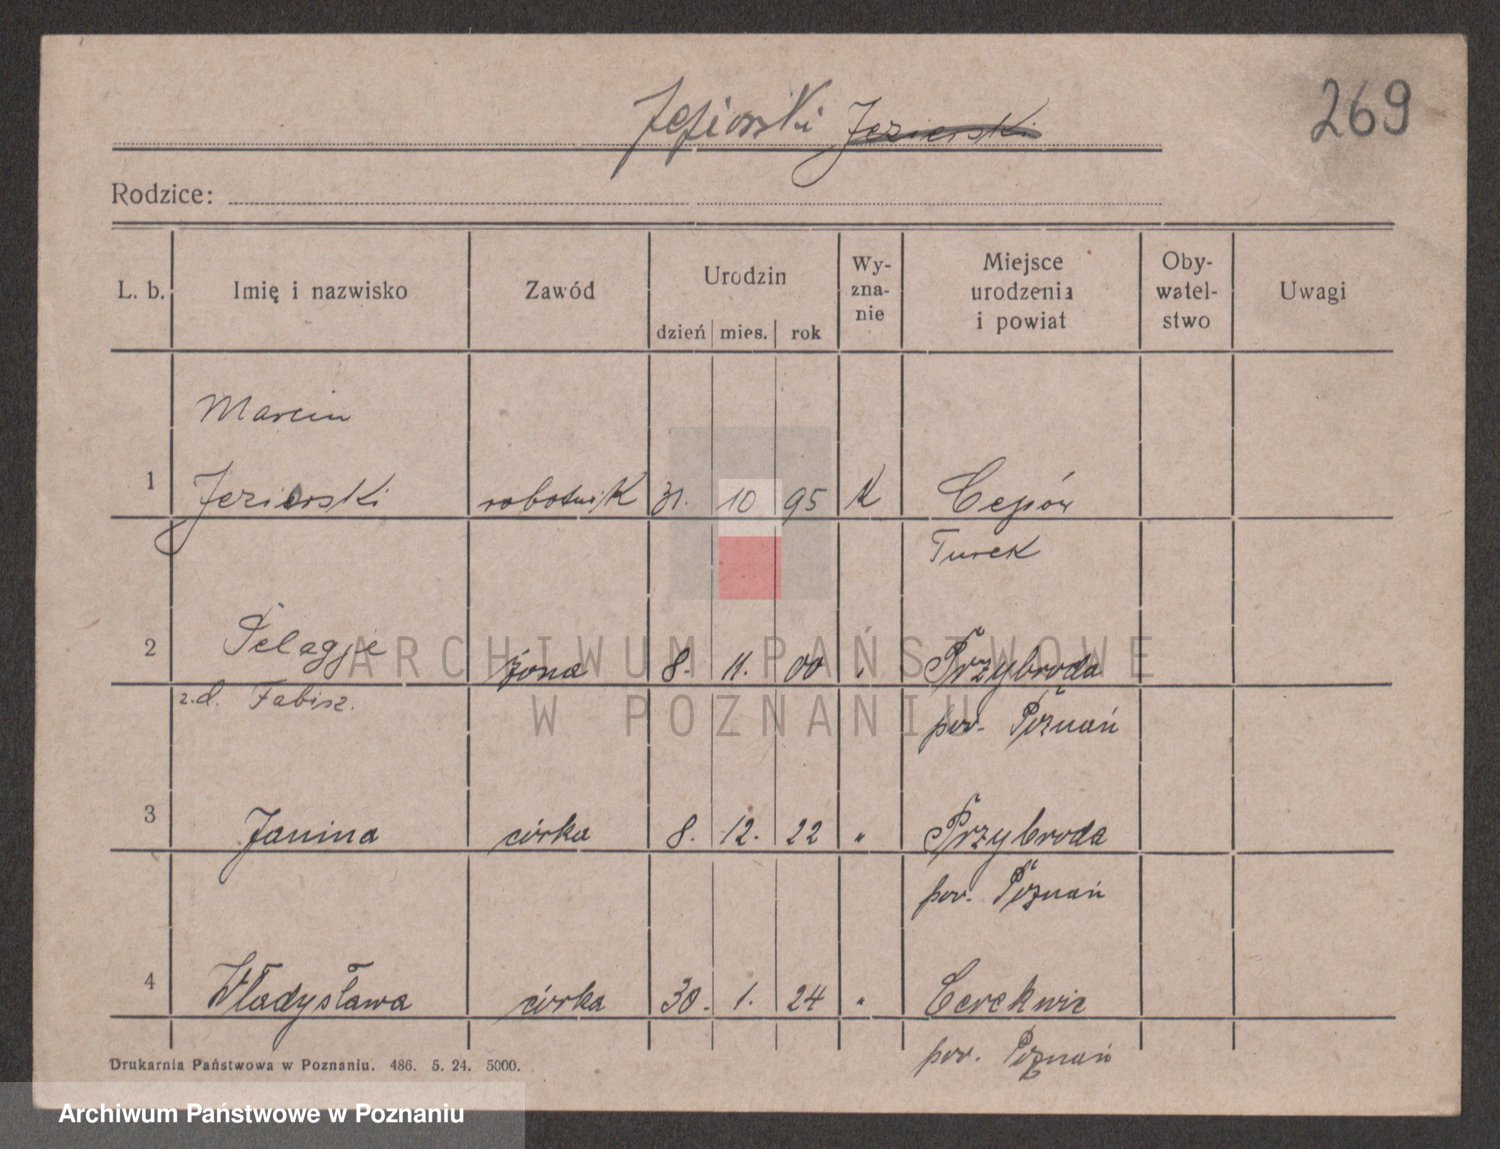 Jeziorski Jezierski 269
Rodzice:
L. b. Imię i nazwisko Zawód Urodzin dzień mies. rok Wy-zna-nie Miejsce urodzenia i powiat Oby-watel-stwo Uwagi
Marcin
1 Jeziorski robotnik 31. 10 95 K
Turek
2 Pelagje żona 8. 11. 00 " Przybroda
z.d. Fabisz. pow. Poznań
3 Janina córka 8. 12. 22 " Przybroda
pow. Poznań
4 Władysława córka 30. 1. 24 " Cerekwic
pow. Poznań
Drukarnia Państwowa w Poznaniu. 486. 5. 24. 5000.
ARCHIWUM PAŃSTWOWE
W POZNANIU
Archiwum Państwowe w Poznaniu